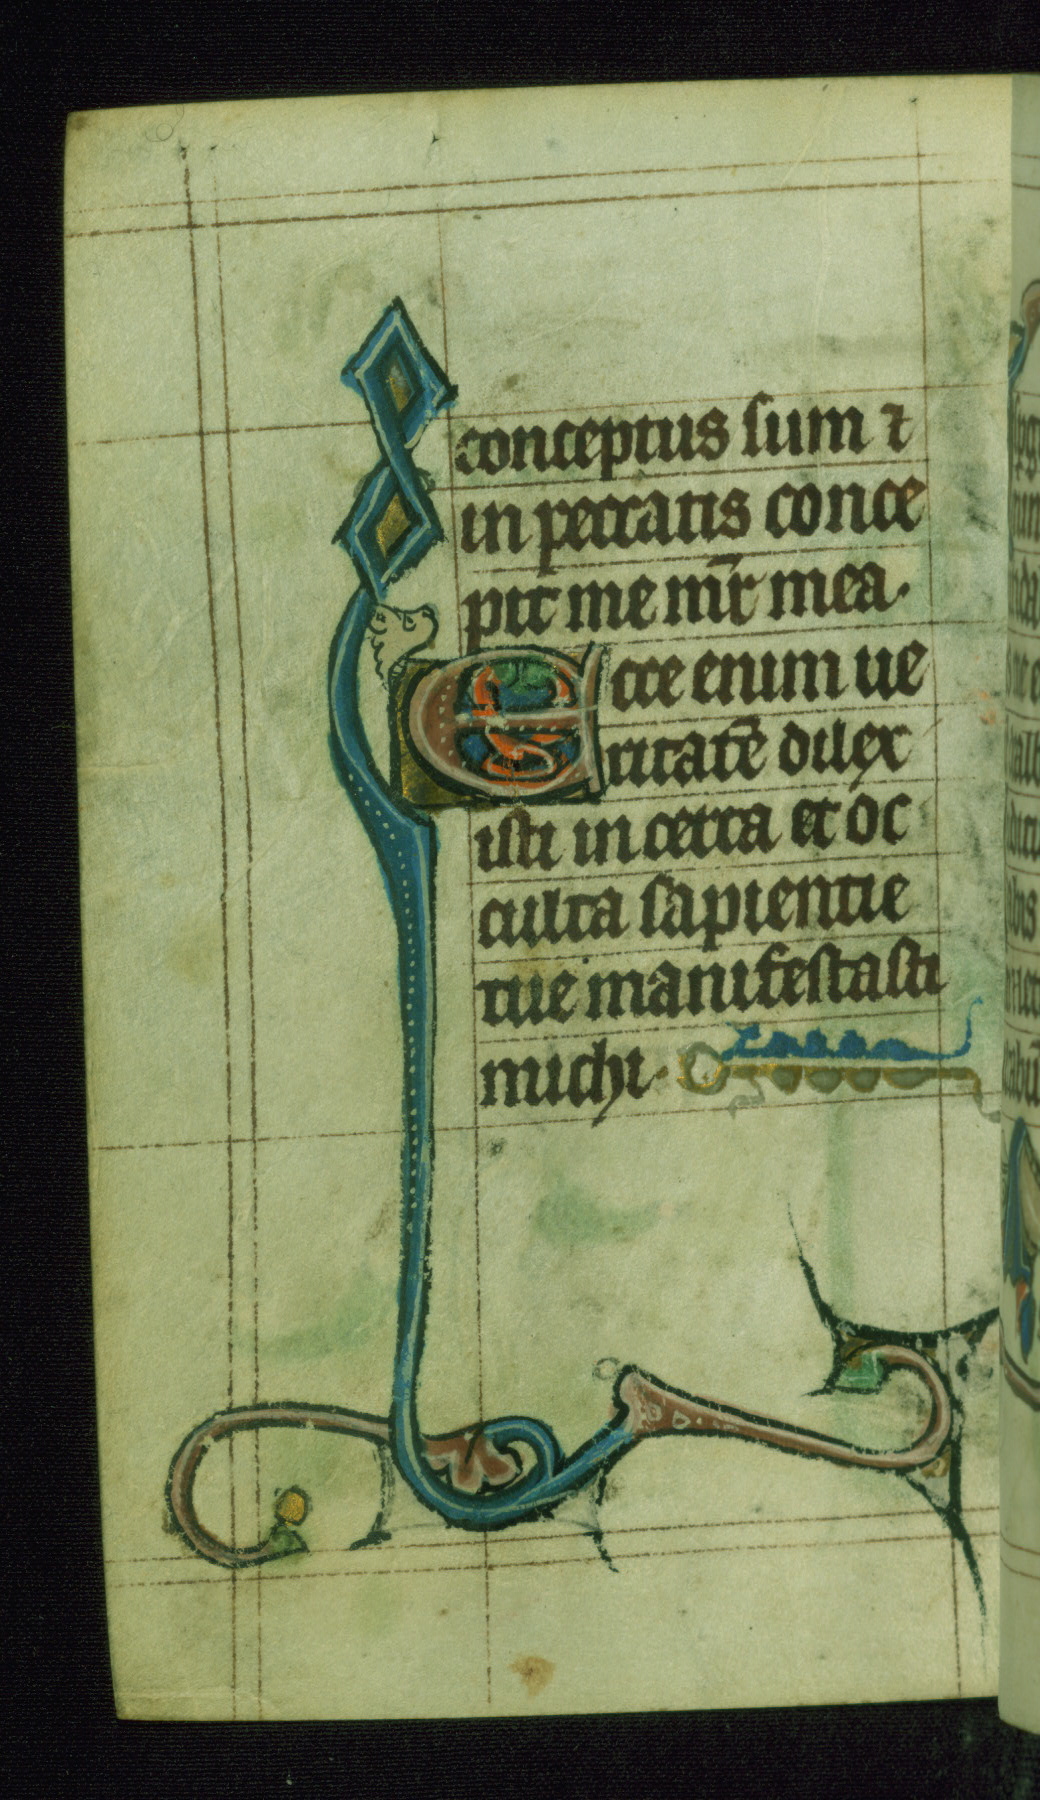 conceptus sum ⁊
in peccatis conce
pit me mr̄ mea·
Ecce enim ue
ritatē dilex
isti incerta et oc
culta sapientie
tue manifestasti
michi·